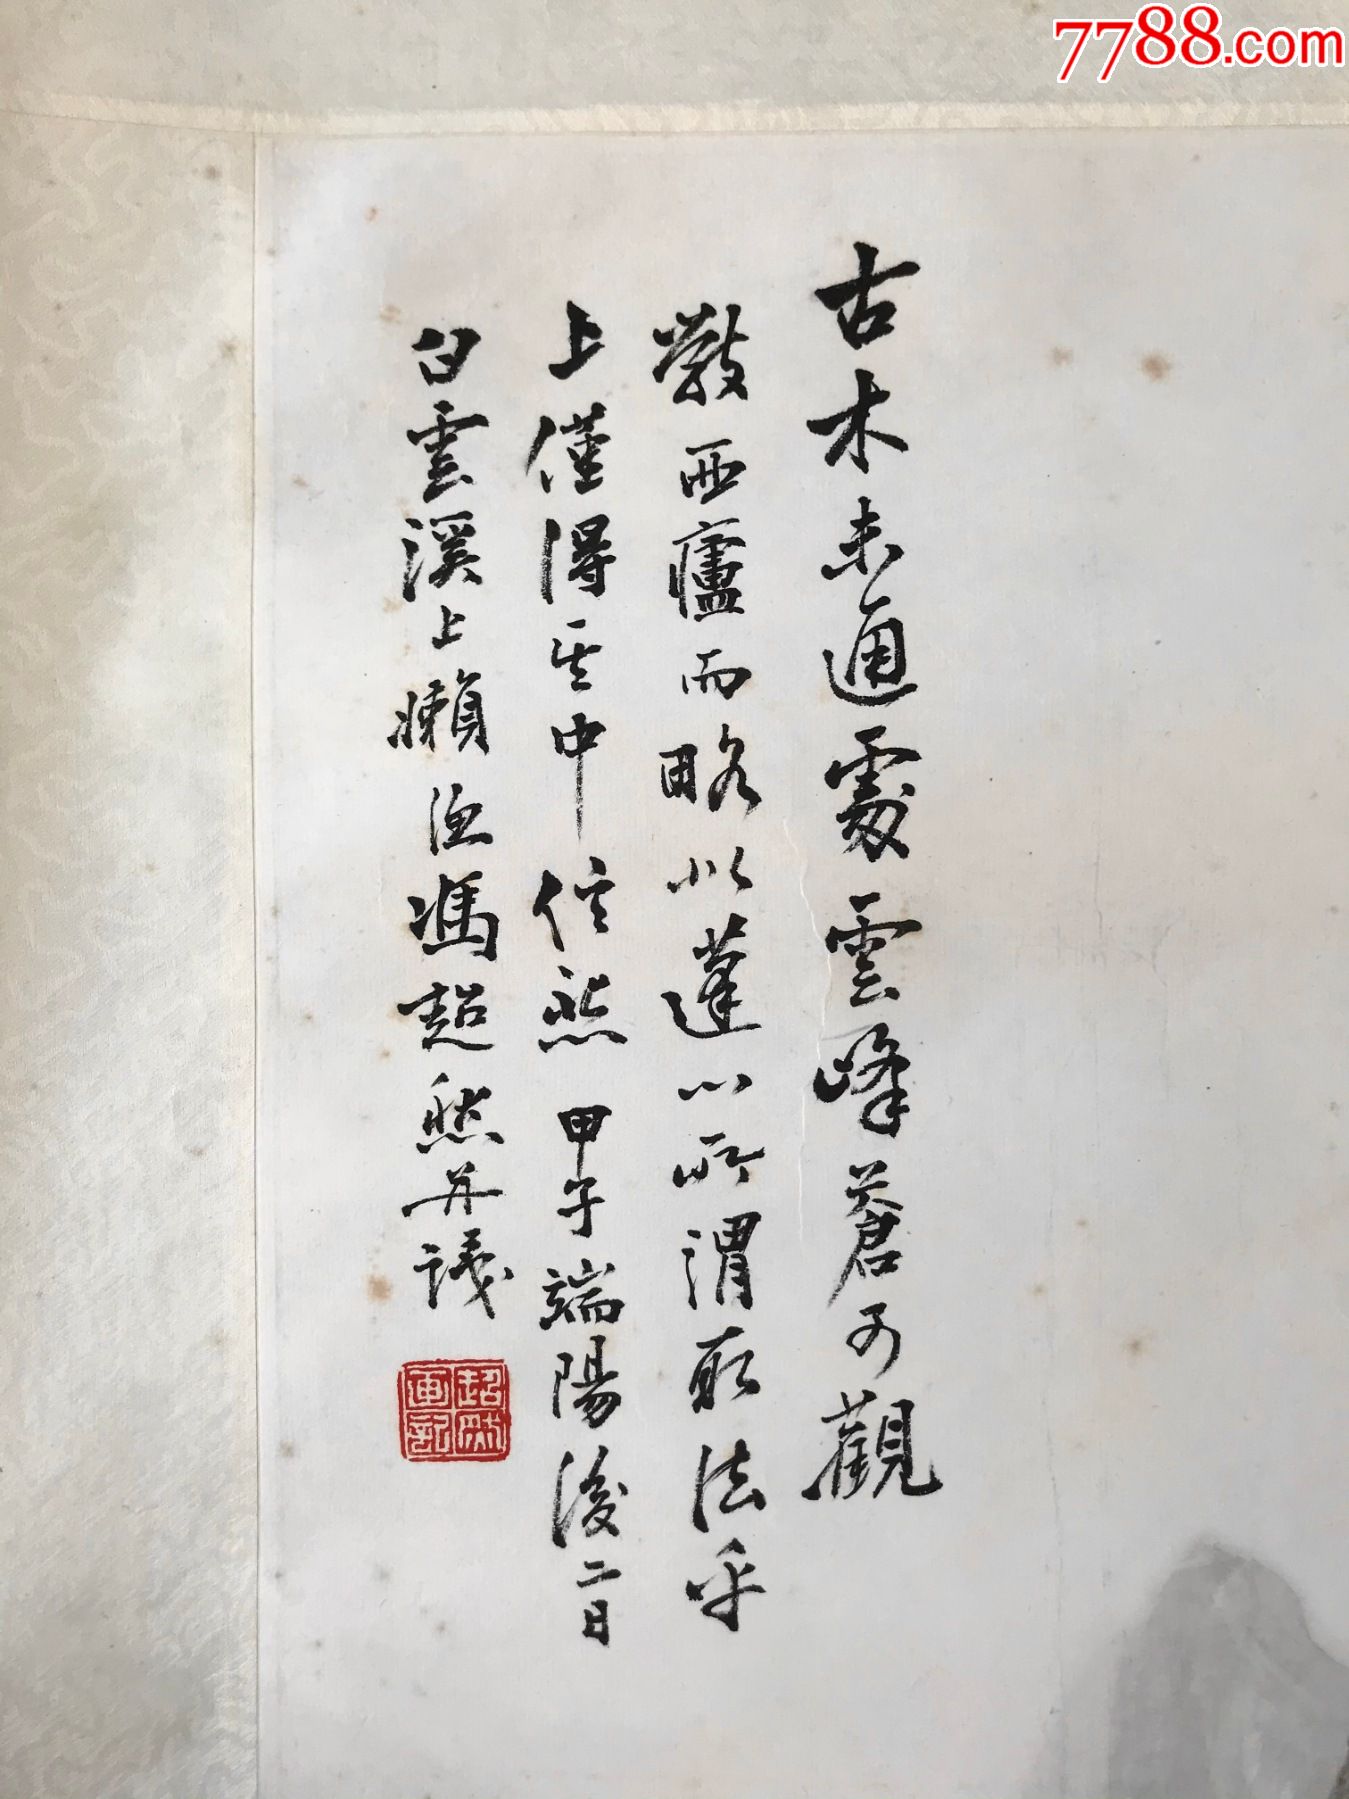 7788.com
古木未通處雲峰蒼可觀
數西廬而略以蓬心所謂取法乎
上僅得其中信然 甲子端陽後二日
白雲溪上嬾漁馮超然并識
超然畫記